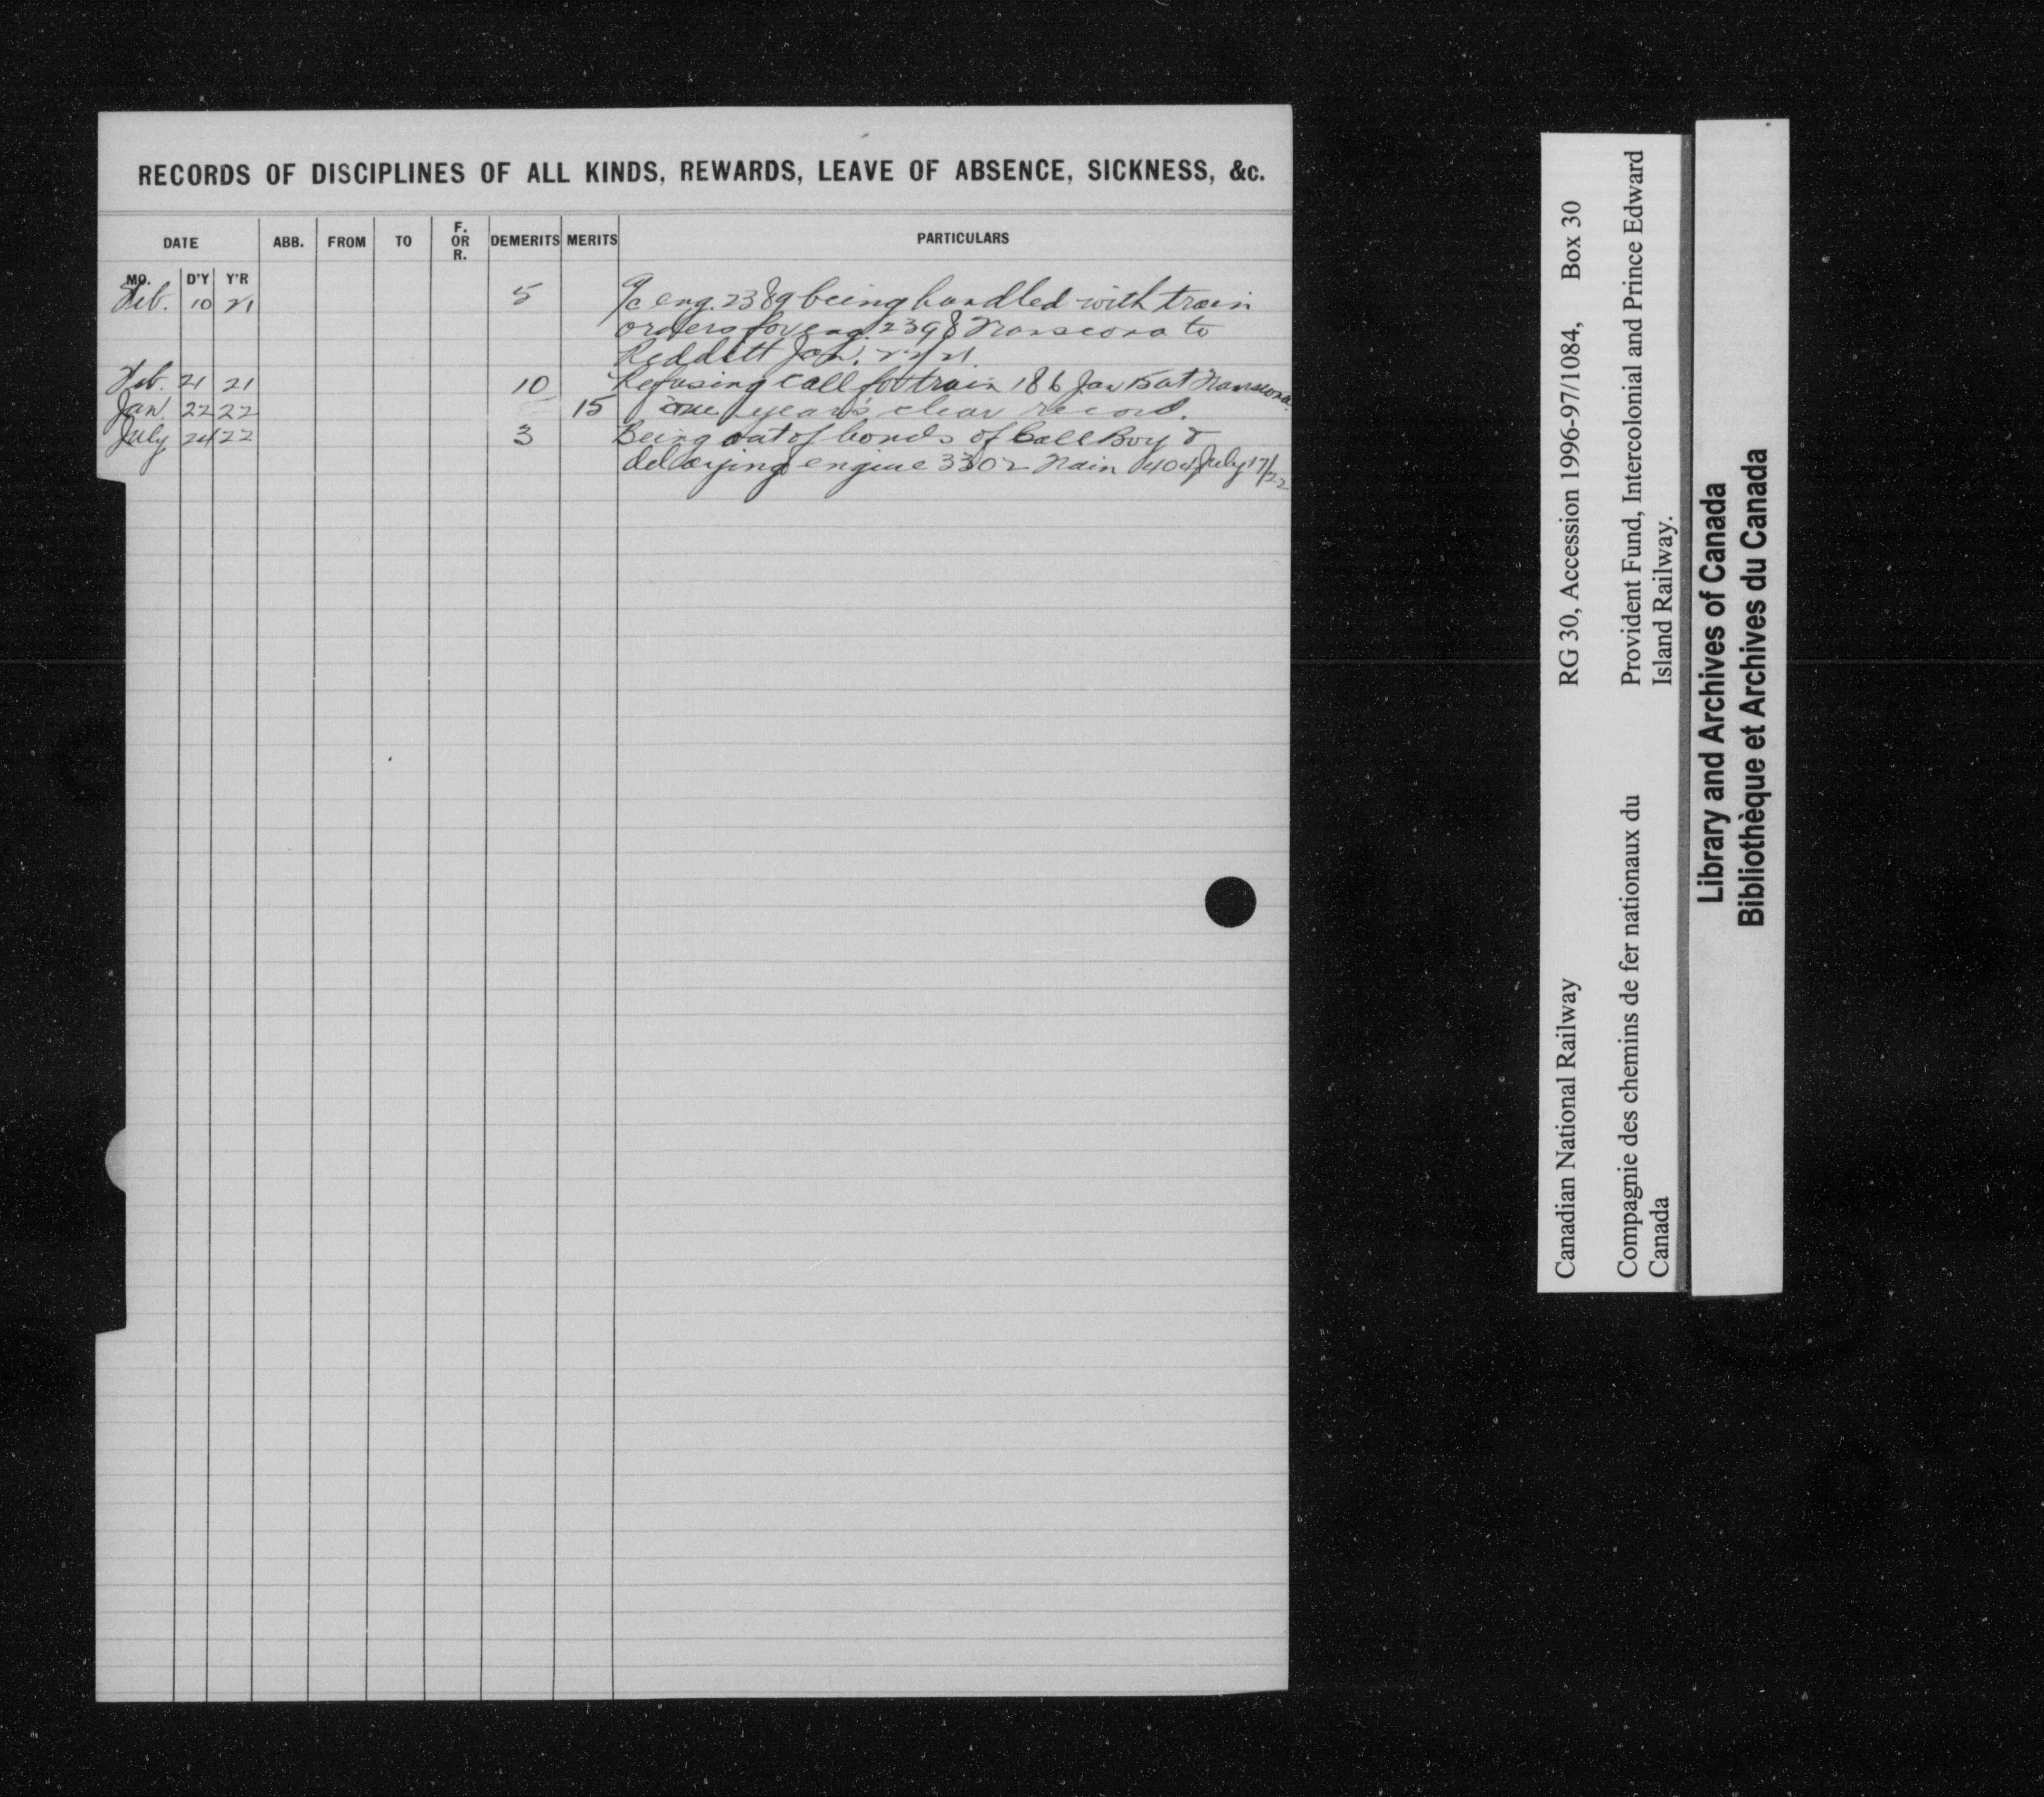 RECORDS OF DISCIPLINES OF ALL KINDS, REWARDS, LEAVE OF ABSENCE, SICKNESS, &c.
DATE ABB. FROM TO F. OR R. DEMERITS MERITS PARTICULARS
MO. D'Y Y'R
Feb. 10 21 5 a/c eng. 2389 being handled with train
orders for eng. 2398 Transcona to
Redditt Jan. 22/21
Feb. 21 21 10 Refusing call for train 186 Jan 15 at Transcona.
Jan. 22 22 15 one year's clear record.
July 24 22 3 Being out of bonds of Call Boy &
delaying engine 3302 train 404 July 17/22
Canadian National Railway RG 30, Accession 1996-97/1084, Box 30
Compagnie des chemins de fer nationaux du Provident Fund, Intercolonial and Prince Edward
Canada Island Railway.
Library and Archives of Canada
Bibliothèque et Archives du Canada